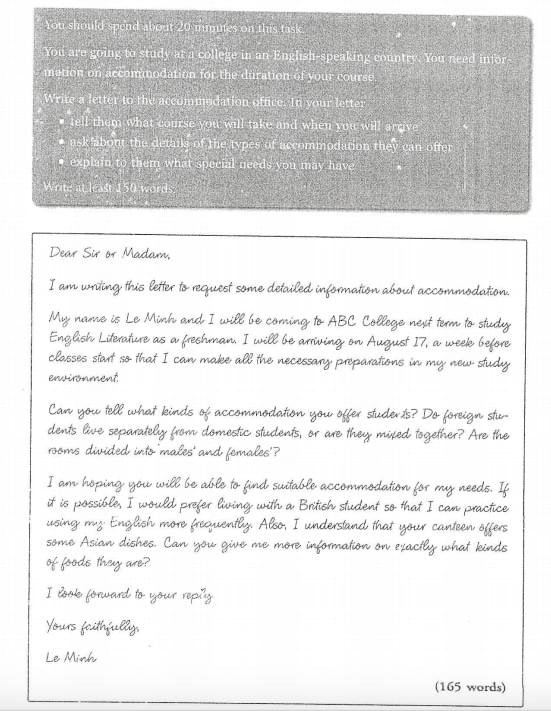 You should spend about 20 minutes on this task.
You are going to study at a college in an English-speaking country. You need infor-
mation on accommodation for the duration of your course.
Write a letter to the accommodation office. In your letter
• tell them what course you will take and when you will arrive
• ask about the details of the types of accommodation they can offer
• explain to them what special needs you may have
Write at least 150 words.
Dear Sir or Madam,
I am writing this letter to request some detailed information about accommodation.
My name is Le Minh and I will be coming to ABC College next term to study
English Literature as a freshman. I will be arriving on August 17, a week before
classes start so that I can make all the necessary preparations in my new study
environment.
Can you tell what kinds of accommodation you offer students? Do foreign stu-
dents live separately from domestic students, or are they mixed together? Are the
rooms divided into 'males' and females'?
I am hoping you will be able to find suitable accommodation for my needs. If
it is possible, I would prefer living with a British student so that I can practice
using my English more frequently. Also, I understand that your canteen offers
some Asian dishes. Can you give me more information on exactly what kinds
of foods they are?
I look forward to your reply
Yours faithfully,
Le Minh
(165 words)